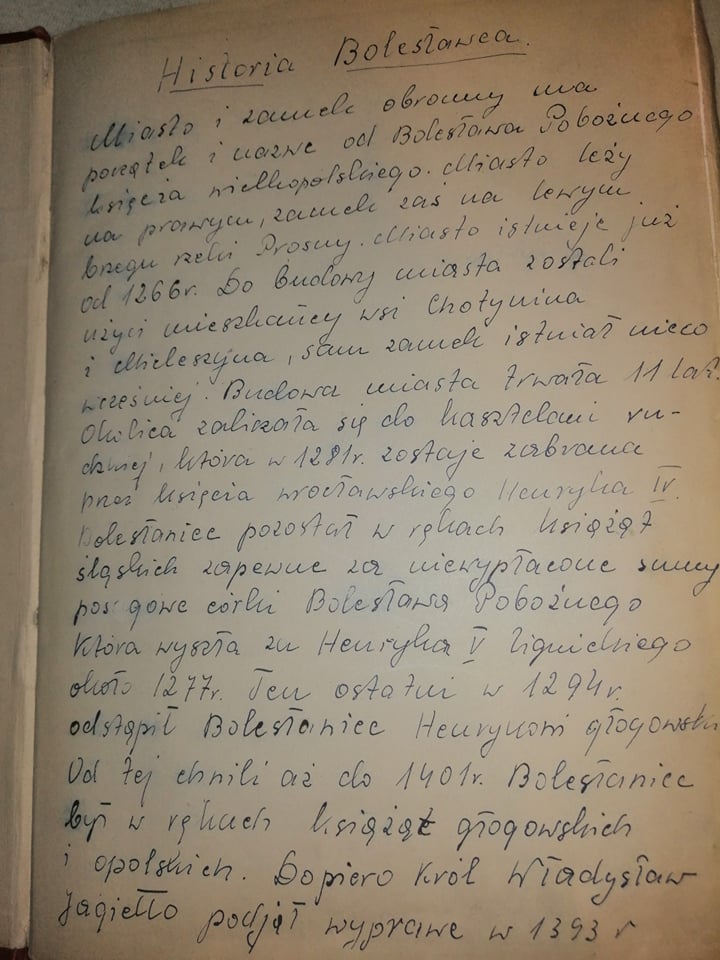 Historia Bolesławca.
Miasto i zamek obronny ma
początek i nazwę od Bolesława Pobożnego
księcia wielkopolskiego. Miasto leży
na prawym, zamek zaś na lewym
brzegu rzeki Prosny. Miasto istnieje już
od 1266r. Do budowy miasta zostali
użyci mieszkańcy wsi Chotynina
i Mieleszyna, sam zamek istniał nieco
wcześniej. Budowa miasta trwała 11 lat.
Okolica zaliczała się do kasztelani ru-
dzkiej, która w 1281r. zostaje zabrana
przez księcia wrocławskiego Henryka IV.
Bolesłaniec pozostał w rękach książąt
śląskich zapewne za niewypłacone sumy
posagowe córki Bolesława Pobożnego
która wyszła za Henryka V lignickiego
około 1277r. Ten ostatni w 1294r.
odstąpił Bolesłaniec Henrykowi głogowski
Od tej chwili aż do 1401r. Bolesłaniec
był w rękach książąt głogowskich
i opolskich. Dopiero król Władysław
Jagiełło podjął wyprawę w 1393 r